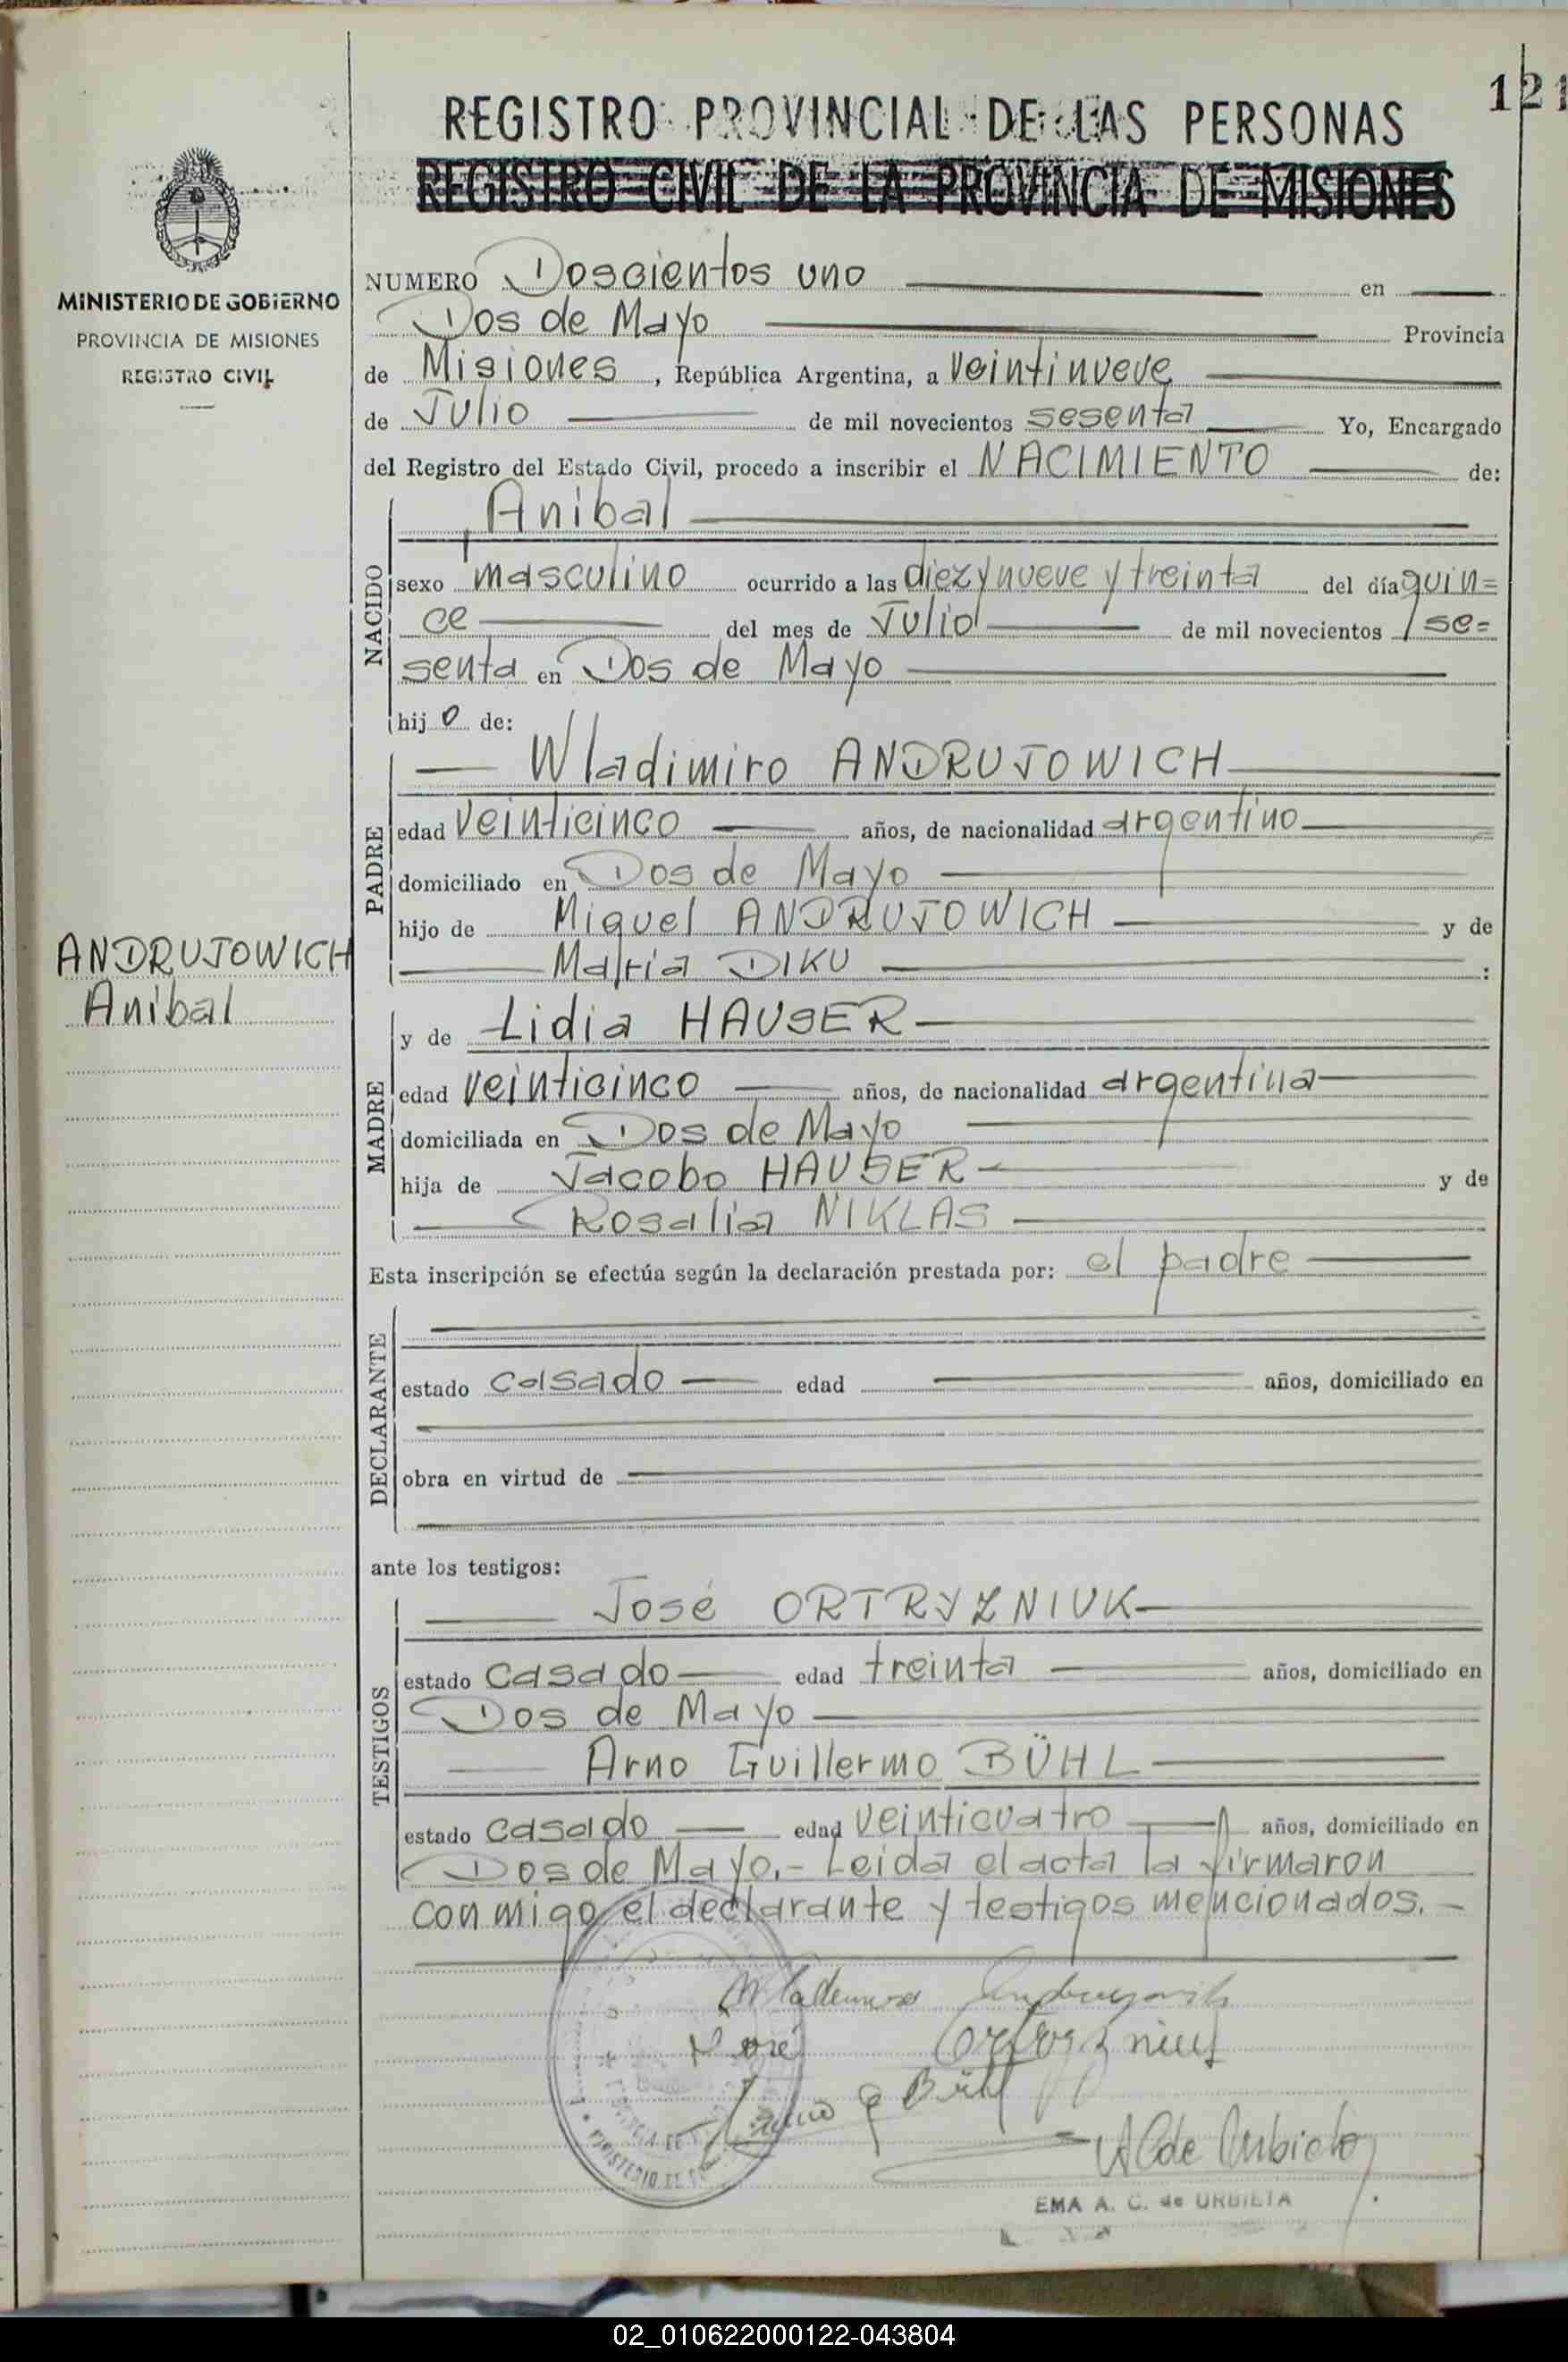 121
REGISTRO PROVINCIAL DE LAS PERSONAS
REGISTRO CIVIL DE LA PROVINCIA DE MISIONES
MINISTERIO DE GOBIERNO
PROVINCIA DE MISIONES
REGISTRO CIVIL
NUMERO Doscientos uno en
Dos de Mayo Provincia
de Misiones, República Argentina, a veintinueve
de Julio de mil novecientos sesenta Yo, Encargado
del Registro del Estado Civil, procedo a inscribir el NACIMIENTO de:
NACIDO
Anibal
sexo masculino ocurrido a las diez y nueve y treinta del día quin=
ce del mes de Julio de mil novecientos se=
senta en Dos de Mayo
hijo de:
PADRE
Wladimiro ANDRUJOWICH
edad veinticinco años, de nacionalidad argentino
domiciliado en Dos de Mayo
hijo de Miguel ANDRUJOWICH y de
María DIKU :
ANDRUJOWICH
Anibal
MADRE
y de Lidia HAUSER
edad veinticinco años, de nacionalidad argentina
domiciliada en Dos de Mayo
hija de Jacobo HAUSER y de
Rosalia NIKLAS
Esta inscripción se efectúa según la declaración prestada por: el padre
DECLARANTE
estado casado edad años, domiciliado en
obra en virtud de
ante los testigos:
TESTIGOS
José ORTRYZNIUK
estado casado edad treinta años, domiciliado en
Dos de Mayo
Arno Guillermo BÜHL
estado casado edad veinticuatro años, domiciliado en
Dos de Mayo.- Leida el acta la firmaron
conmigo el declarante y testigos mencionados.-
José
Arno G Bühl
A C de Urbieta
EMA A. C. de URBIETA
02_010622000122-043804